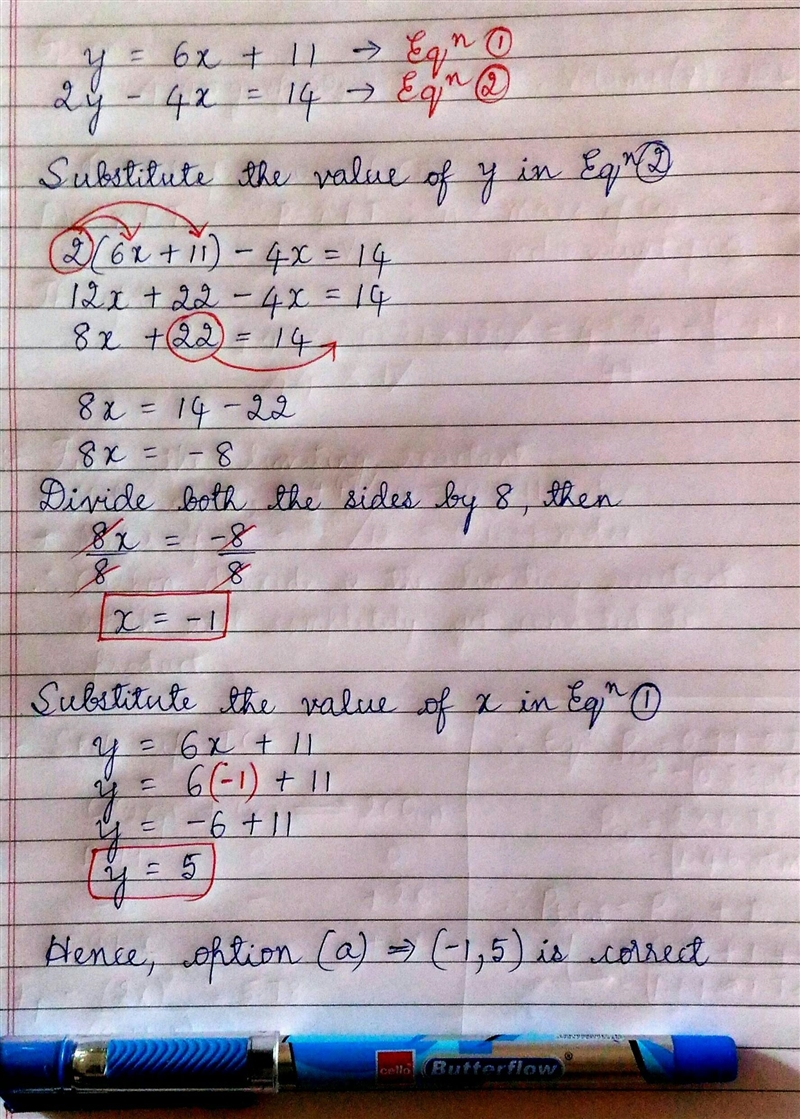 y = 6x + 11 → Eqⁿ ①
2y - 4x = 14 → Eqⁿ ②
Substitute the value of y in Eqⁿ ②
2(6x + 11) - 4x = 14
12x + 22 - 4x = 14
8x + 22 = 14
8x = 14 - 22
8x = -8
Divide both the sides by 8, then
8x = -8
8 8
x = -1
Substitute the value of x in Eqⁿ ①
y = 6x + 11
y = 6(-1) + 11
y = -6 + 11
y = 5
Hence, option (a) ⇒ (-1, 5) is correct
cello Butterflow®